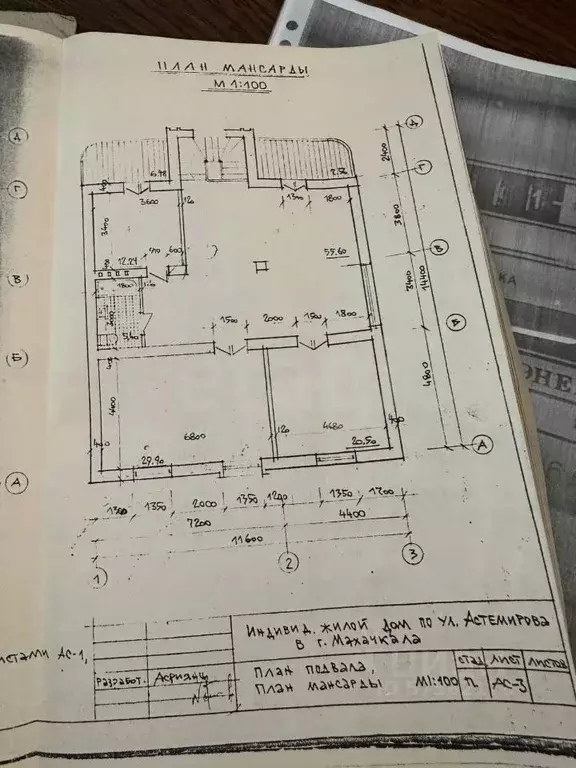 ПЛАН МАНСАРДЫ
М 1:100
Д
Г
В
Б
А
6.78
7.56
3600
120
1800
2400
3800
3400
14400
4800
3400
12.24
600
55.60
1800
1500
2000
1500
1800
4400
6800
120
4680
29.90
20.50
1350
2000
1350
1240
1350
1700
7200
4400
11600
1
2
3
Д
Г
В
Б
А
ИНДИВИД. ЖИЛОЙ ДОМ ПО УЛ. АСТЕМИРОВА
В Г. МАХАЧКАЛА
СТАМИ АС-1,
РАЗРАБОТ.
АСРИЯНЦ
ПЛАН ПОДВАЛА,
ПЛАН МАНСАРДЫ М1:100
СТАД ЛИСТ ЛИСТОВ
П АС-3